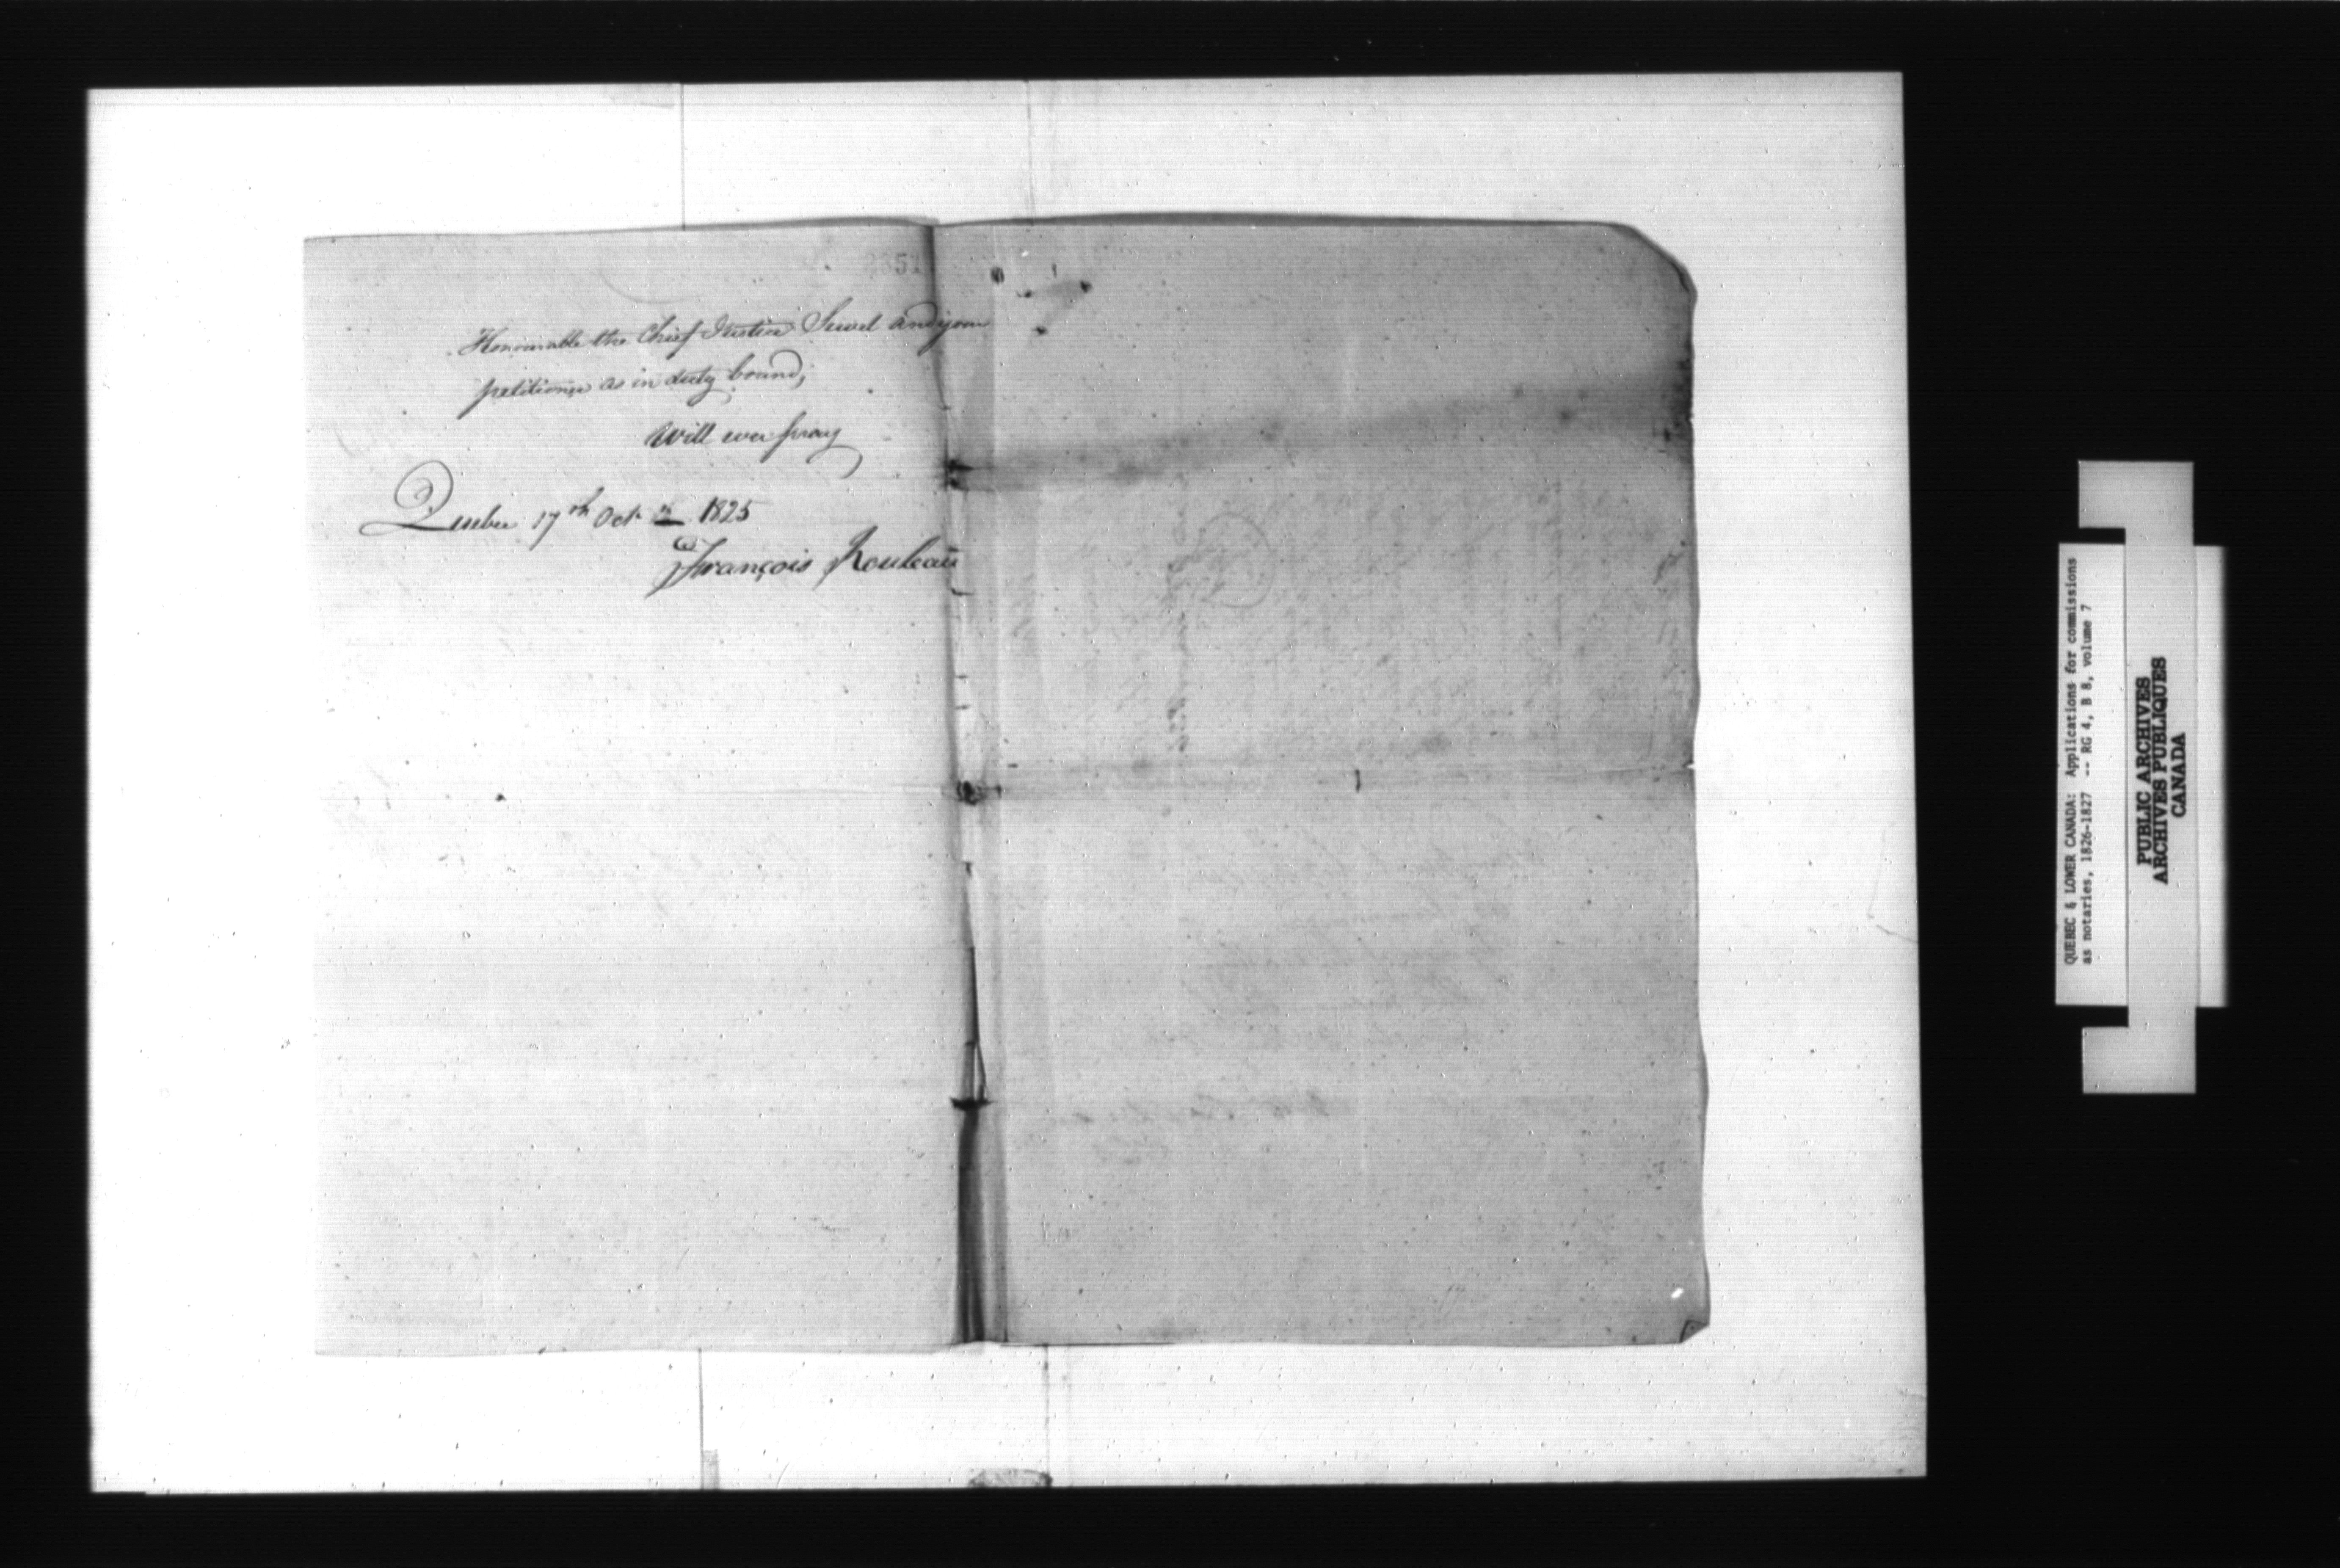 2351
Honourable the Chief Justice Sewel and your
petitioner as in duty bound;
Will ever pray
Quebec 17th Oct. 1825
François Rouleau
QUEBEC & LOWER CANADA: Applications for commissions
as notaries, 1826-1827 -- RG 4, B 8, volume 7
PUBLIC ARCHIVES
ARCHIVES PUBLIQUES
CANADA